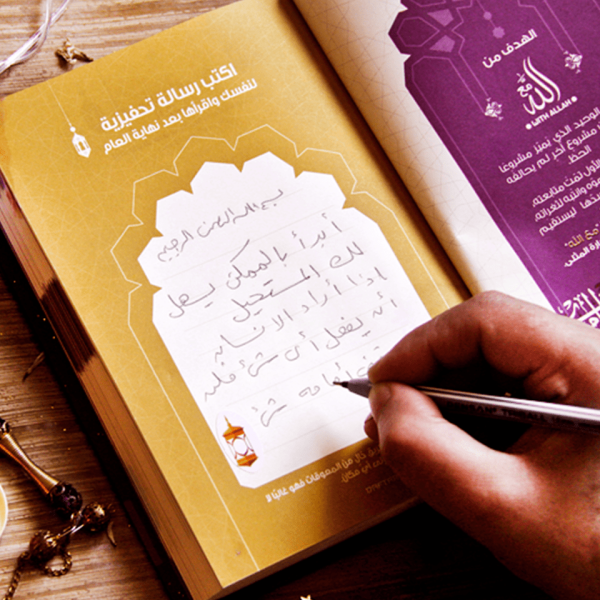 اكتب رسالة تحفيزية
لنفسك واقرأها بعد نهاية العام
بسم الله الرحمن الرحيم
أبدأ بالممكن يسهل
لك المستحيل
إذا أراد الانسان
أن يفعل أي شيء فلن
شيء
خال من المعوقات فهو غالبًا لا
الهدف من
مع الله
WITH ALLAH
الوحيد الذي تميّز مشروعا
مشروع آخر لم يحالفه
الحظ
الأول تمّت متابعته
ليستقيم
مع الله